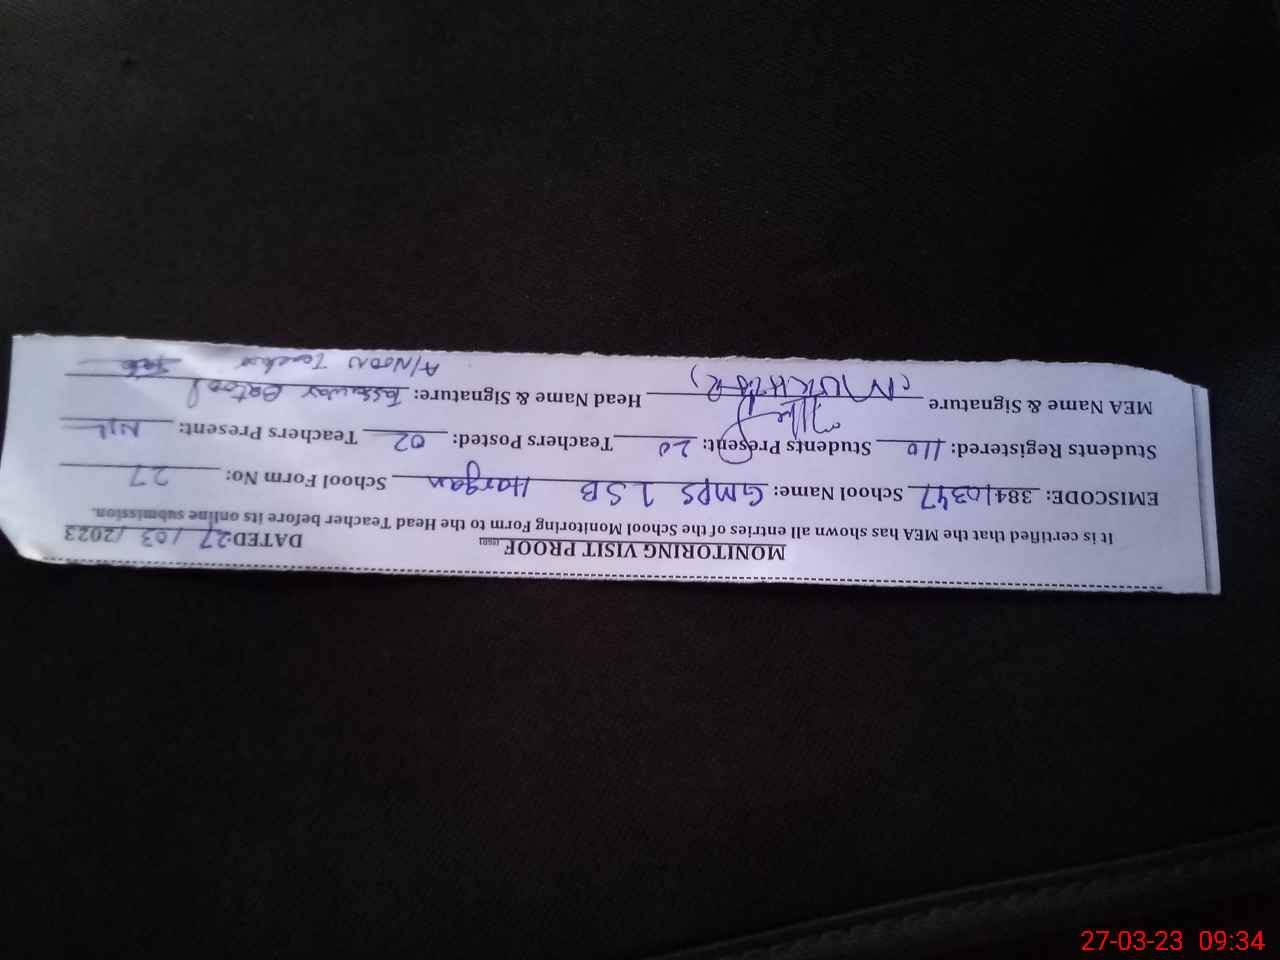 MONITORING VISIT PROOF DATED: 27/03/2023
It is certified that the MEA has shown all entries of the School Monitoring Form to the Head Teacher before its online submission.
EMISCODE: 38410347 School Name: GMPS 1 SB Hargan School Form No: 27
Students Registered: 110 Students Present: 20 Teachers Posted: 02 Teachers Present: NIL
MEA Name & Signature (MUKHTAR) Head Name & Signature: Batool
A/NOON Teacher
27-03-23 09:34